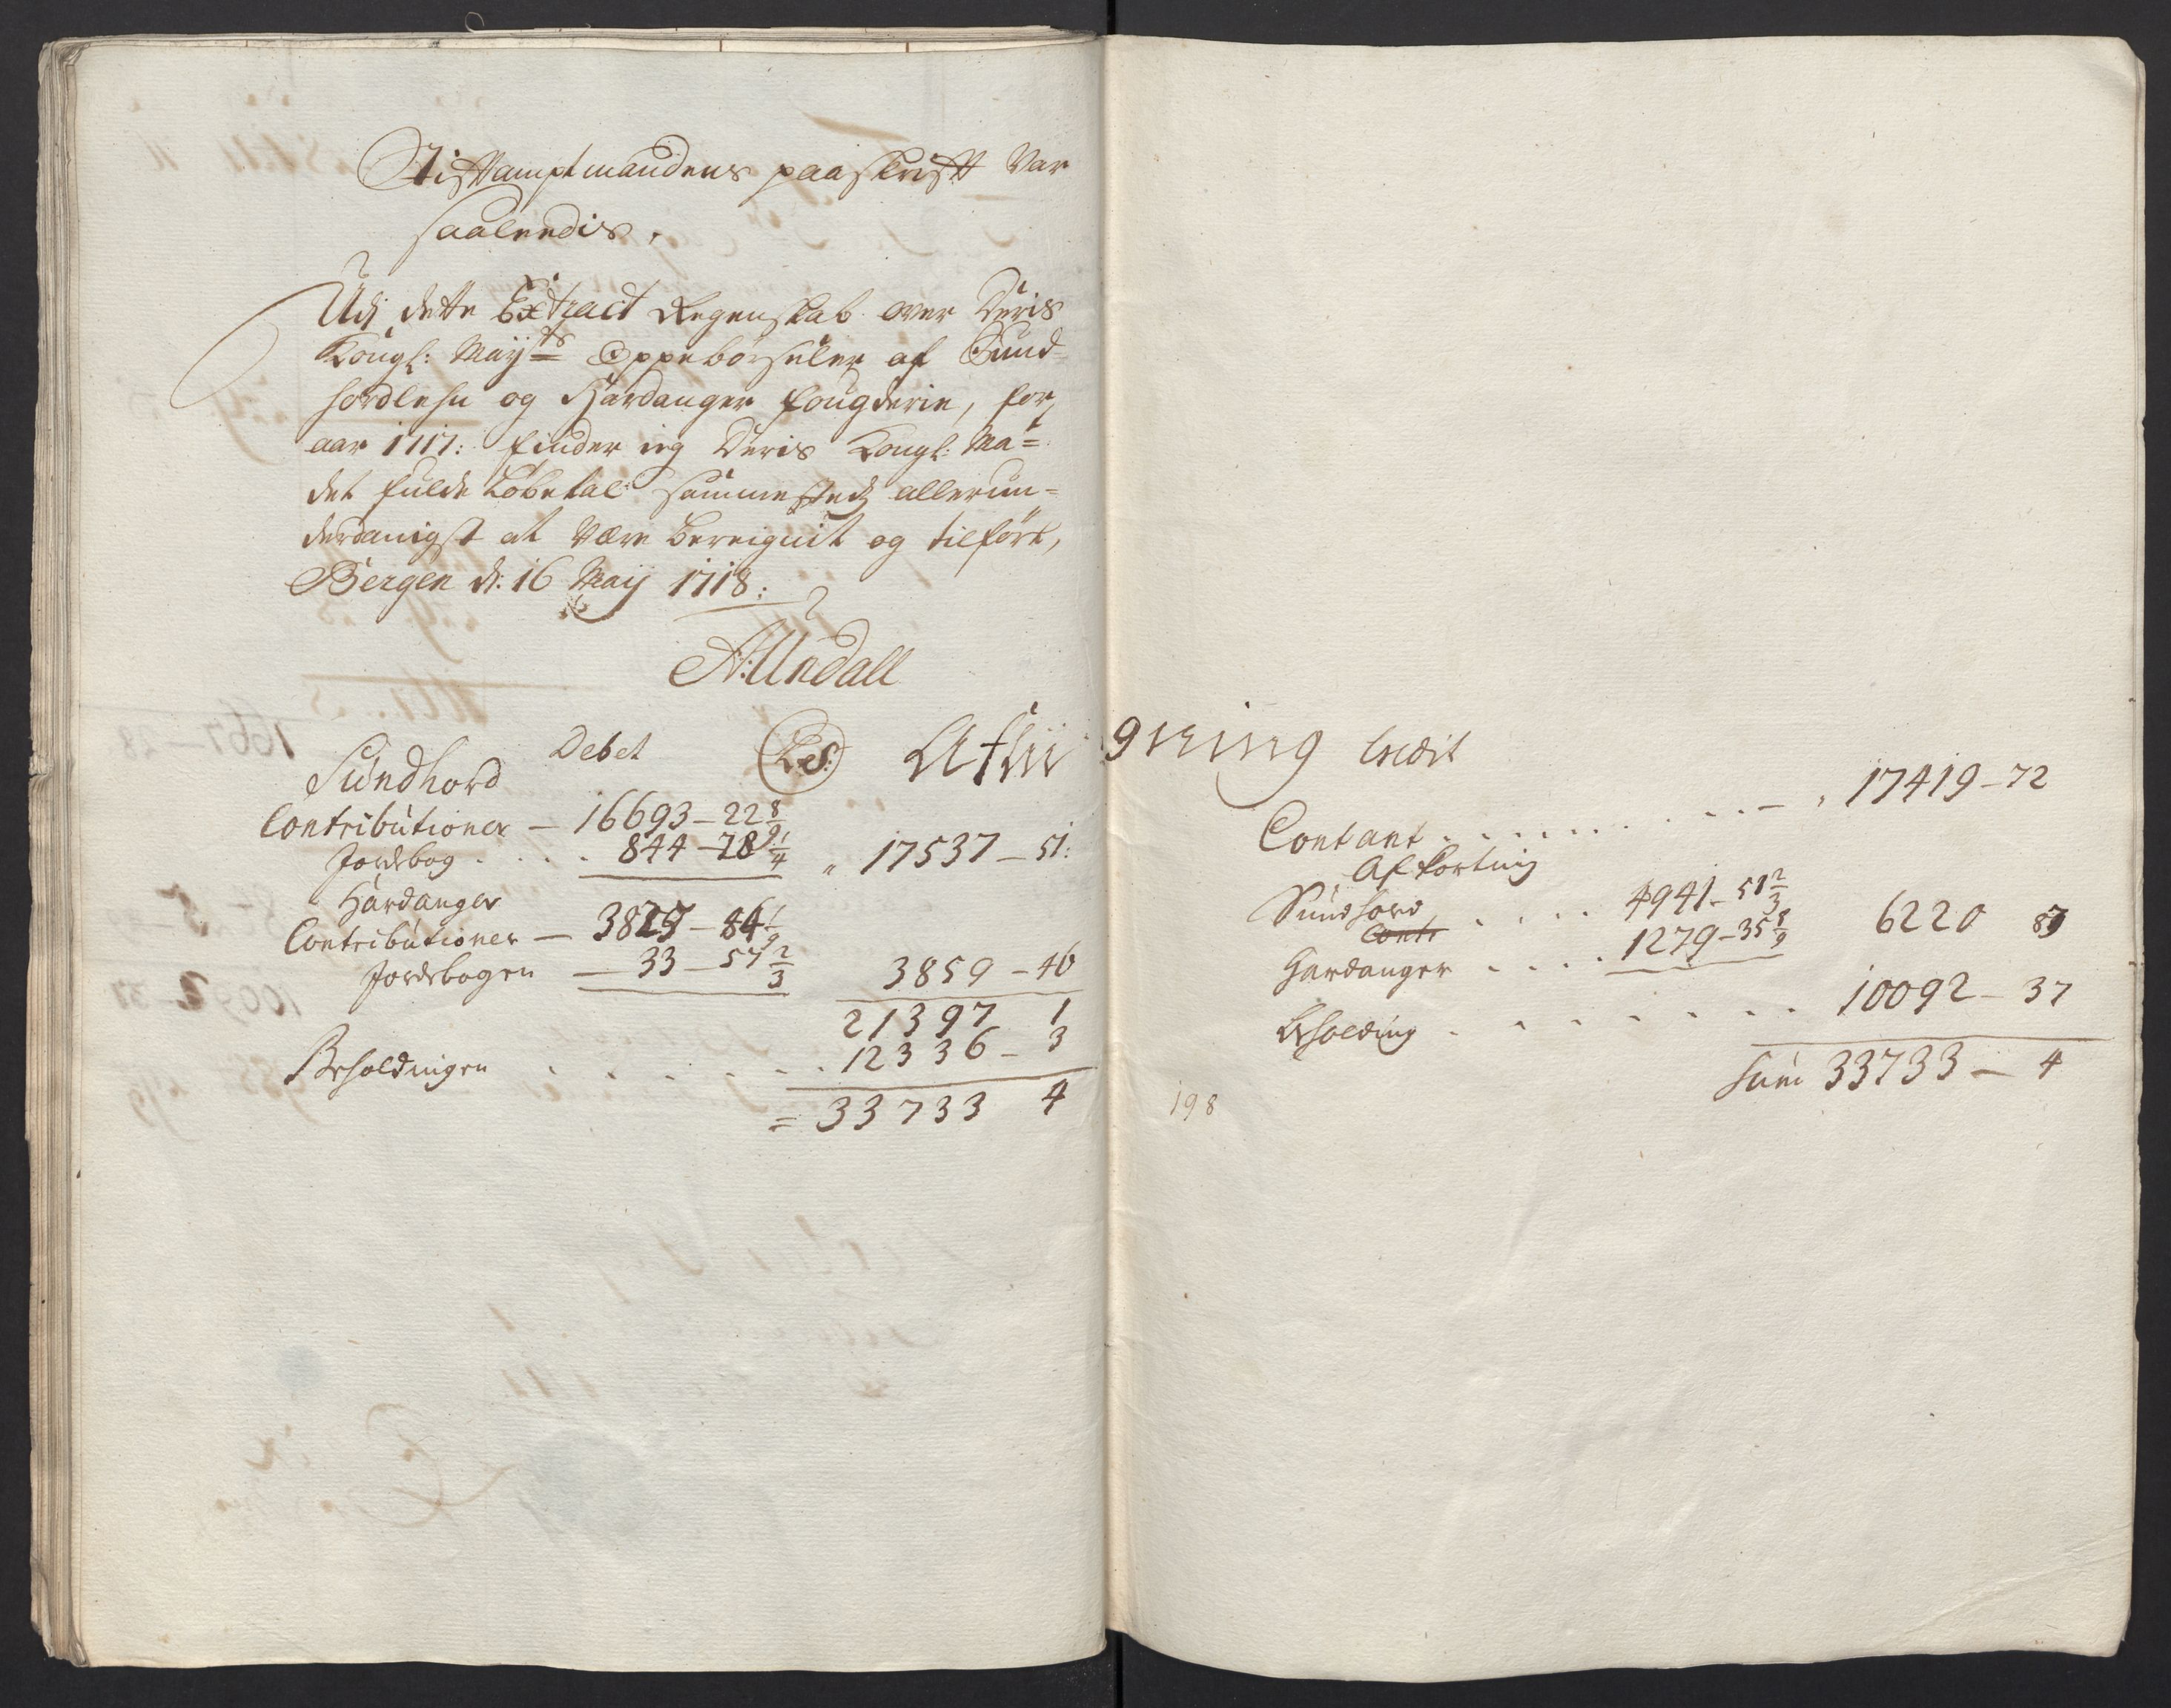 Stiftamptmandens paaskrifft var
saaledis.
Udj dette Extract Regenskab over Deris
Kongl: Maÿts Oppebørseler af Sund-
hordlehn og Hardanger fougderie, for
aar 1717: finder ieg Deris Kongl: Mat
det fulde Løbetal sammestedz allerun-
derdanigst at være bereignit og tilført,
Bergen d: 16 Maij 1718:
A: Undall
L.S.
Debet
Sundhord
Contributioner — 16693 – 22 8/9
Jordebog . . . . 844 – 28 1/4 „ 17537 – 51:
Hardanger
Contributioner —
Jordebogen — 33 – 57 2/3 3859 – 46
21397 1
Beholdningen . . . . . . 12336 – 3
= 33733 4
Credit
Contant . . . . . . . . . – , 17419 – 72
Afkorting
Sundhord . . . . 4941 – 51 2/3
Contr
Hardanger . . . . 1279 – 35 8/9 6220
Beholding . . . . . . . . 10092 – 37
Sum 33733 – 4
198